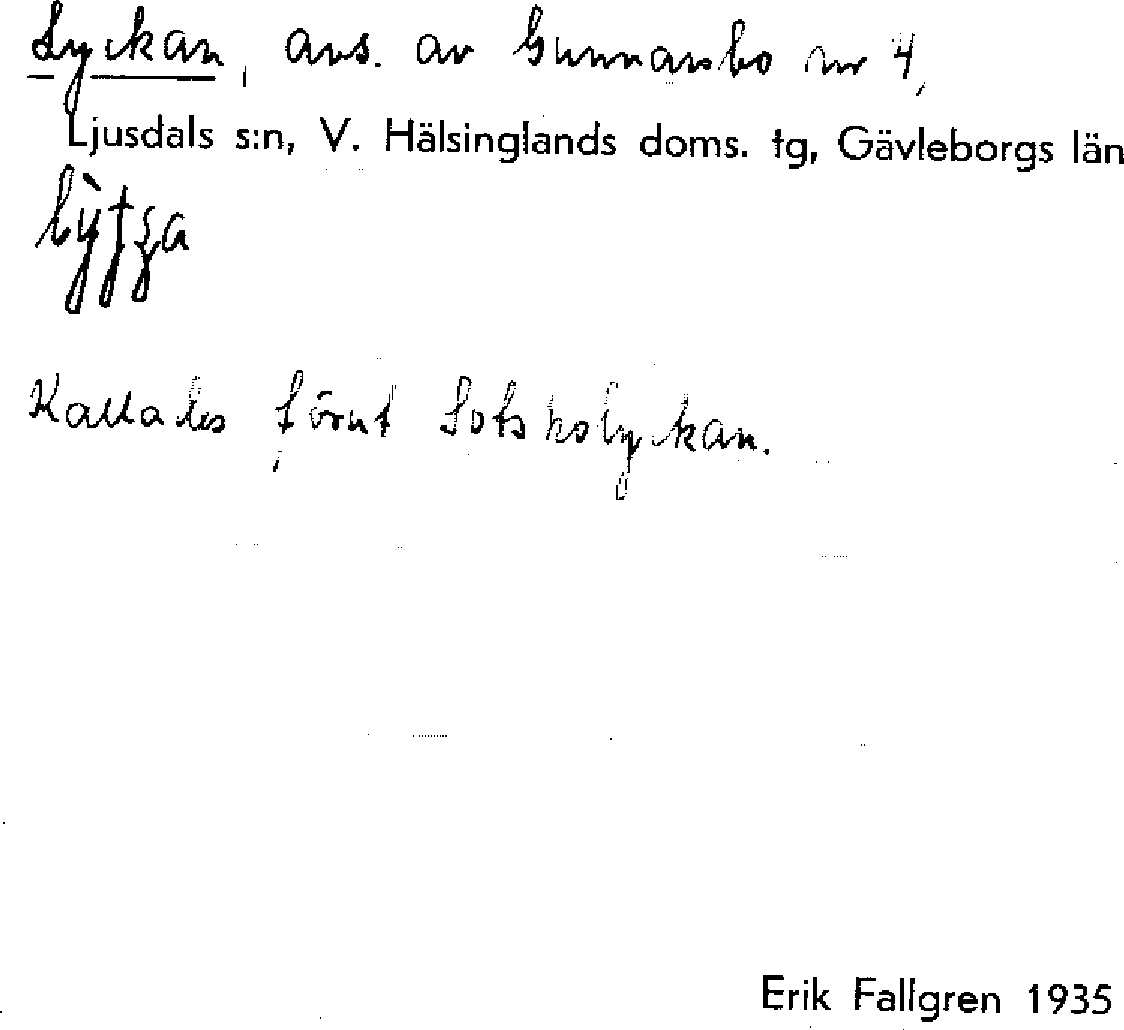 Lyckan, avs. av Gunnarsbo nr 4,
Ljusdals s:n, V. Hälsinglands doms. tg, Gävleborgs län
Kallades förut Sotskolyckan.
Erik Fallgren 1935